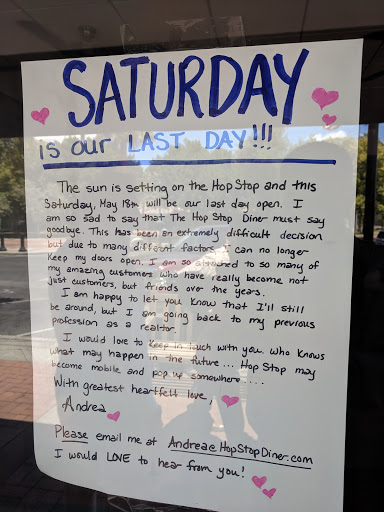 SATURDAY
is our LAST DAY!!!
The sun is setting on the Hop Stop and this
Saturday, May 18th will be our last day open. I
am so sad to say that The Hop Stop Diner must say
goodbye. This has been an extremely difficult decision
but due to many different factors I can no longer
Keep my doors open. I am so attached to so many of
my amazing customers who have really become not
just customers, but friends over the years.
I am happy to let you know that I'll still
be around, but I am going back to my previous
profession as a realtor.
I would love to keep in touch with you. who knows
what may happen in the future... Hop Stop may
become mobile and pop up somewhere.....
With greatest heartfelt love,
Andrea
Please email me at Andrea@HopStopDiner.com
I would LOVE to hear from you!